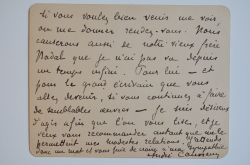 Si vous voulez bien venir me voir,
ou me donner rendez-vous. Nous
causerons aussi de notre vieux frère
Nadal que je n'ai pas vu depuis
un temps infini. Pour lui — et
pour le grand écrivain que vous
allez devenir, si vous continuez à faire
de semblables — je suis
d'agir afin que l'on vous lise, et je
veux vous recommander autant que me le
permettent mes modestes relations.
donc un mot et vous
André